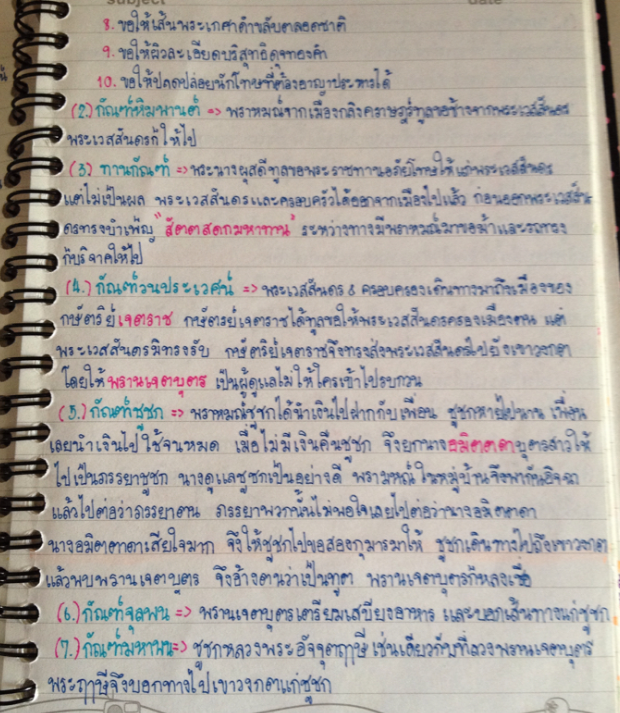 subject
date
8. ขอให้เส้นพระเกศาดำขลับตลอดชาติ
9. ขอให้ผิวละเอียดบริสุทธิ์ดุจทองคำ
10. ขอให้ปลดปล่อยนักโทษที่ต้องอาญาประหารได้
(2.) กัณฑ์หิมพานต์ => พราหมณ์จากเมืองกลิงคราษฎร์ทูลขอช้างจากพระเวสสันดร
พระเวสสันดรก็ให้ไป
(3) ทานกัณฑ์ => พระนางผุสดีทูลขอพระราชทานอภัยโทษให้แก่พระเวสสันดร
แต่ไม่เป็นผล พระเวสสันดรและครอบครัวได้ออกจากเมืองไปแล้ว ก่อนออกพระเวสสัน
ดรทรงบำเพ็ญ "สัตตสดกมหาทาน" ระหว่างทางมีพราหมณ์มาขอม้าและรถทรง
ก็บริจาคให้ไป
(4.) กัณฑ์วนประเวศน์ => พระเวสสันดร & ครอบครองเดินทางมาถึงเมืองของ
กษัตริย์เจตราช กษัตรย์เจตราชได้ทูลขอให้พระเวสสันดรครองเมืองตน แต่
พระเวสสันดรมิทรงรับ กษัตริย์เจตราชจึงทรงส่งพระเวสสันดรไปยังเขาวงกต
โดยให้พรานเจตบุตร เป็นผู้ดูแลไม่ให้ใครเข้าไปรบกวน
(5.) กัณฑ์ชูชก => พราหมณ์ชูชกได้นำเงินไปฝากกับเพื่อน ชูชกหายไปนาน เพื่อน
เลยนำเงินไปใช้จนหมด เมื่อไม่มีเงินคืนชูชก จึงยกนางอมิตตดาบุตรสาวให้
ไปเป็นภรรยาชูชก นางดูแลชูชกเป็นอย่างดี พรามหณ์ในหมู่บ้านจึงพากันอิจฉา
แล้วไปต่อว่าภรรยาตน ภรรยาพวกนั้นไม่พอใจเลยไปต่อว่านางอมิตตาดา
นางอมิตตาดาเสียใจมาก จึงให้ชูชกไปขอสองกุมารมาให้ ชูชกเดินทางไปถึงเขาวงกต
แล้วพบพรานเจตบุตร จึงอ้างตนว่าเป็นทูต พรานเจตบุตรก็หลงเชื่อ
(6.) กัณฑ์จุลพน => พรานเจตบุตรเตรียมเสบียงอาหาร และบอกเส้นทางแก่ชูชก
(7.) กัณฑ์มหาพน => ชูชกหลวงพระอัจจุตฤาษี เช่นเดียวกับที่ลวงพรานเจตบุตร
พระฤาษีจึงบอกทางไปเขาวงกตแก่ชูชก